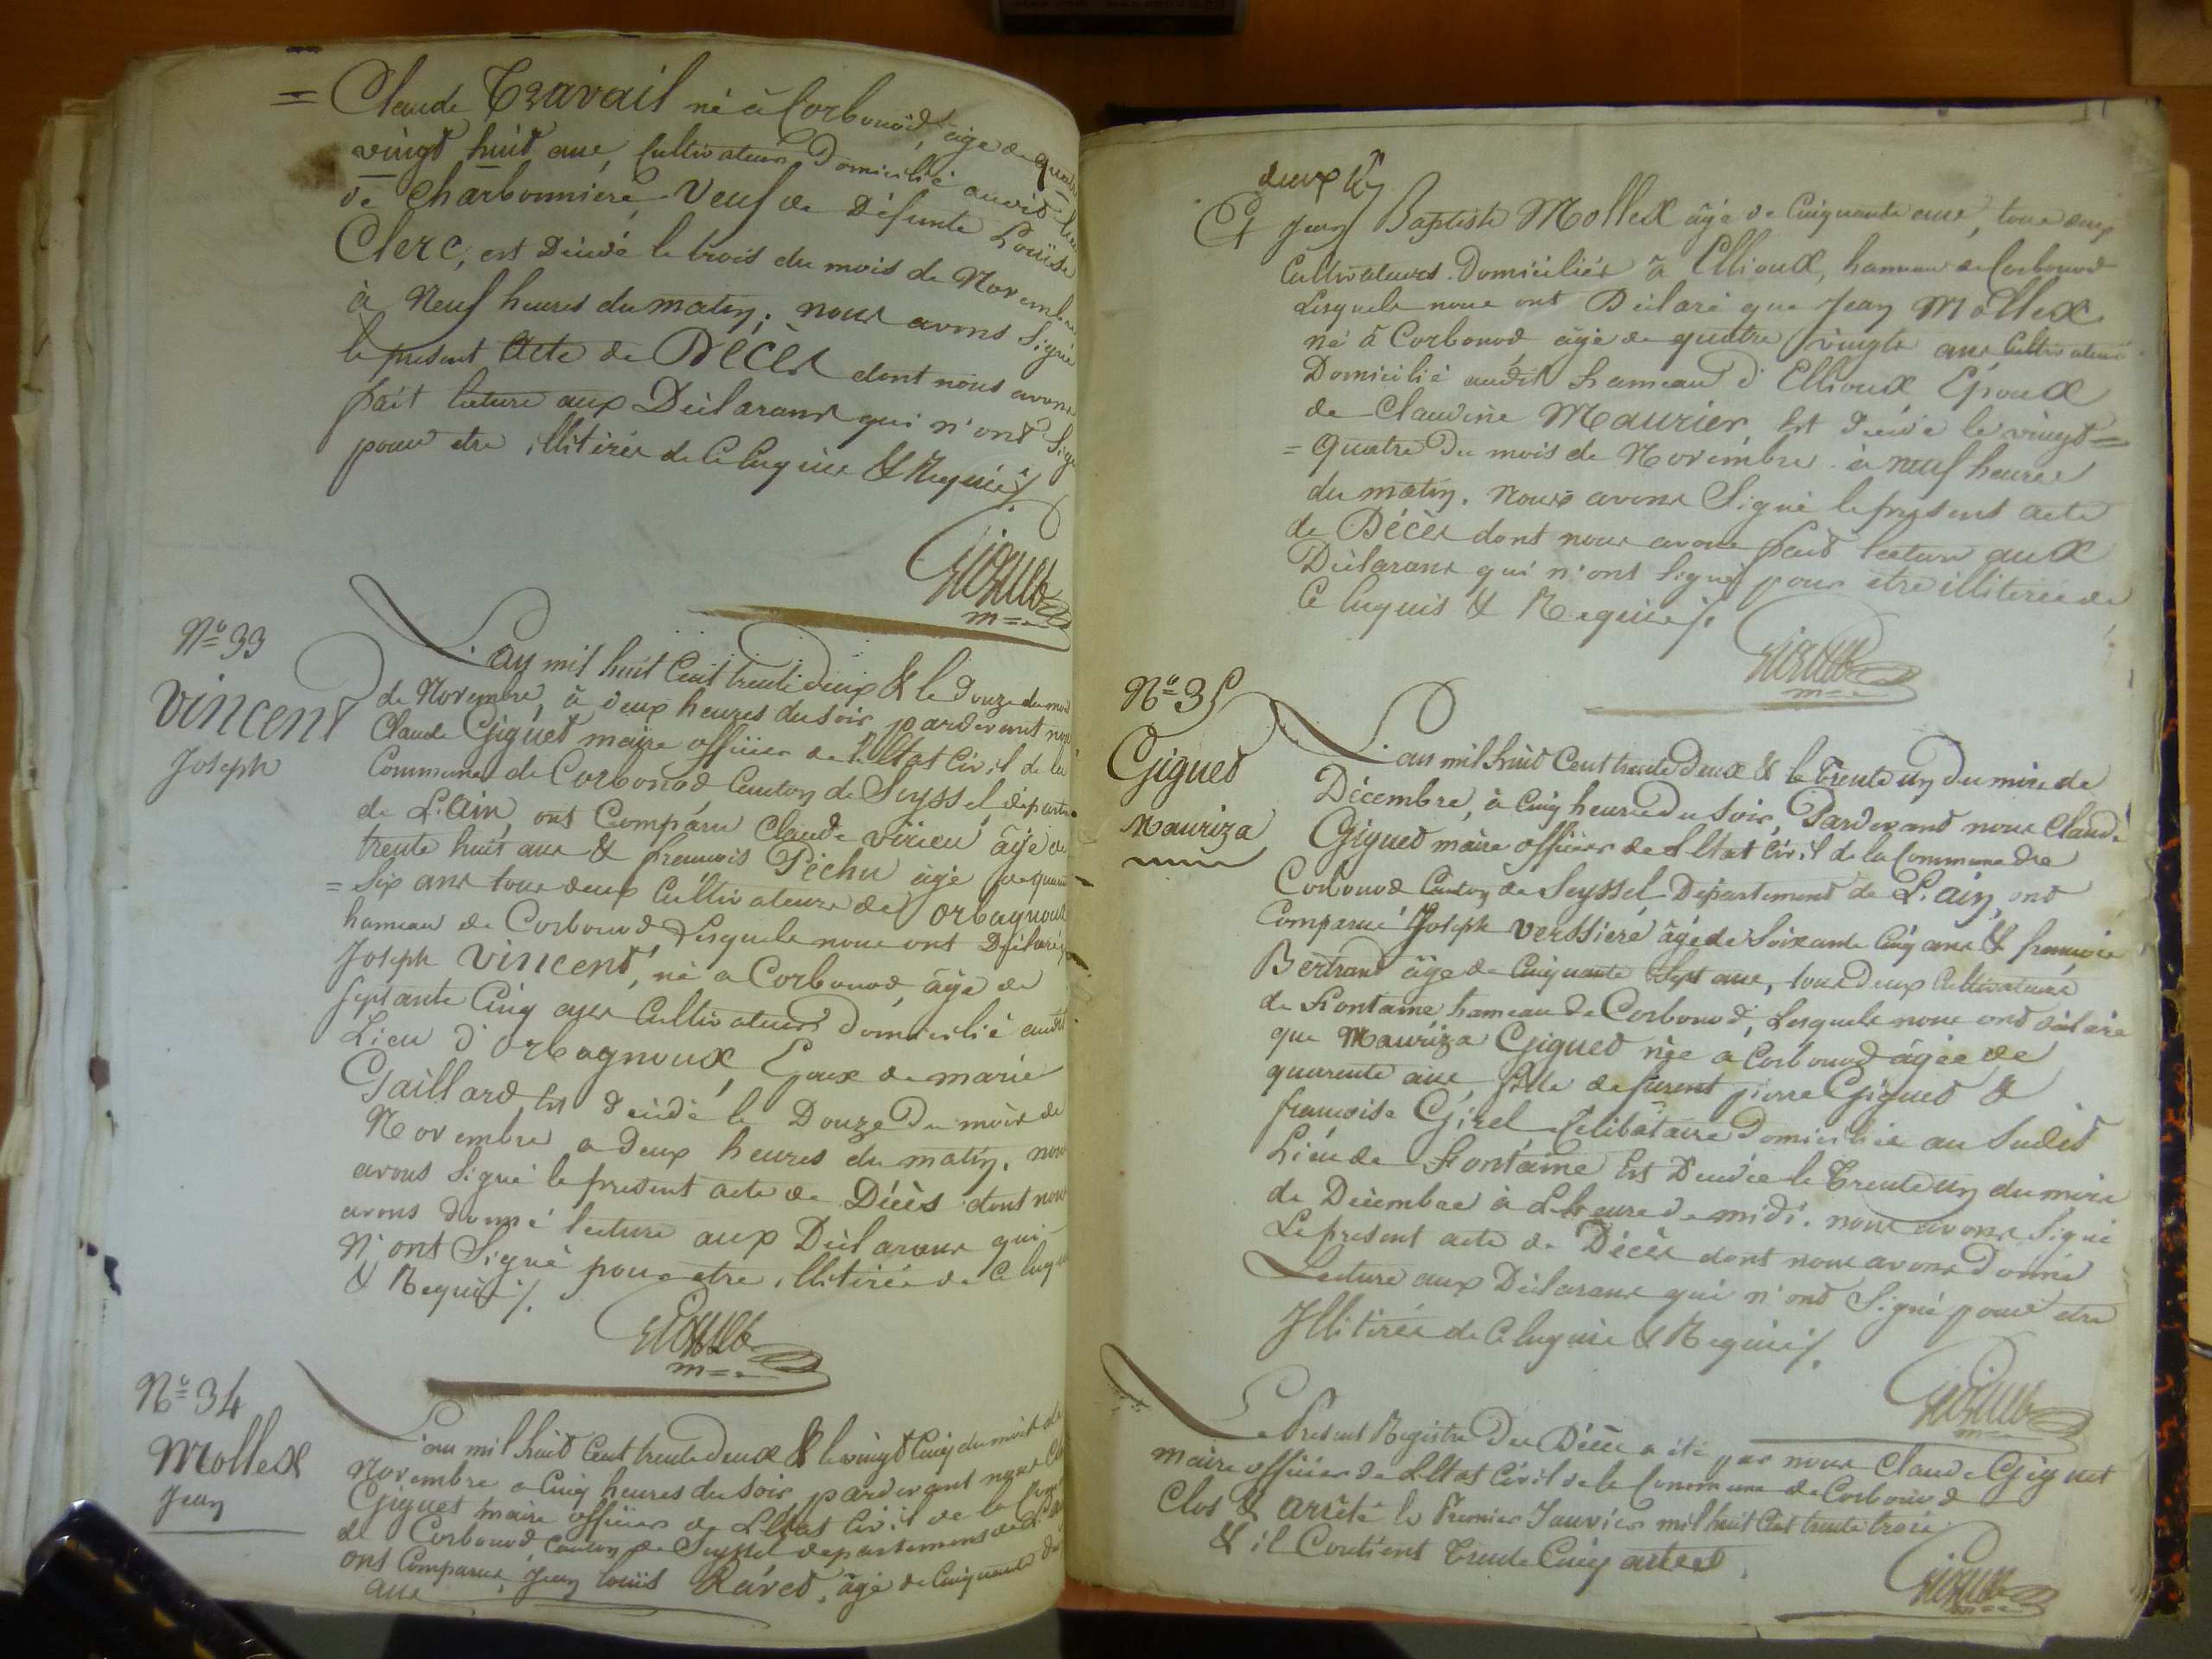 = Claude Travail né à Corbonod, âgé de quatre
vingt huit ans, Cultivateur Domicilié audit lieu
de Charbonniere, Veuf de Défunte Louise
Clerc, est Décédé le trois du mois de Novembre
à Neuf heures du matin; nous avons Signé
le present Acte de Décès dont nous avons
fait lecture aux Déclarans qui n'ont Signé
pour etre illitérés de ce enquis & Requis /.
Giguet
m=
N° 33
Vincent
Joseph
L'an mil huit Cent trente deux & le Douze du mois
de Novembre, à deux heures du soir, pardevant nous
Claude Giguet maire officier de l'Etat Civil de la
Commune de Corbonod Canton de Seyssel, départe
de L'ain, ont Comparu Claude virieu âgé de
trente huit ans & francois Péchu âgé de quarante
= Six ans tous deux Cultivateurs de Orbagnoux
hameau de Corbonod, Lesquels nous ont Déclaré
Joseph Vincent, né a Corbonod, âgé de
septante Cinq ans Cultivateur Domicilié audit
Lieu d'Orbagnoux, Epoux de marie
Gaillard, Est décédé le Douze Du mois de
Novembre a Deux heures du matin, nous
avons Signé le present acte de Décès dont nous
avons donné lecture aux Déclarans qui
N'ont Signé pour etre illitérés de Ce enquis
& Requis /.
Giguet
m=
N° 34
Mollex
Jean
L'an mil huit Cent trente deux & le vingt Cinq du mois de
Novembre a Cinq heures du soir, pardevant nous Cl
Giguet maire officier de L'Etat Civil de la Comm
de Corbonod Canton de Seyssel département de L'ain
ont Comparu, Jean Louis Ravet, âgé de Cinquante deux
ans
deux
Et Jean Baptiste Mollex âgé de Cinquante ans, tous deux
Cultivateurs Domiciliés à Ellioux, hameau de Corbonod
Lesquels nous ont Déclaré que Jean Mollex
né à Corbonod âgé de quatre vingts ans Cultivateur
Domicilié audit hameau d'Ellioux Epoux
de Claudine Maurier Est décédé le vingt=
= quatre Du mois de Novembre à neuf heures
du matin. Nous avons Signé le present acte
de Décès dont nous avons fait lecture aux
Déclarans qui n'ont signé pour etre illitérés de
Ce enquis & Requis /.
Giguet
m=
N° 35
Giguet
Mauriza
L'an mil huit Cent trente deux & le Trente un Du mois de
Décembre, à Cinq heures du Soir, Pardevant nous Claude
Giguet maire officier de l'Etat Civil de la Commune de
Corbonod Canton de Seyssel Département de L'ain, ont
Comparu Joseph Verssiere âgé de Soixante Cinq ans & francois
Bertrand âgé de Cinquante Sept ans, tous deux Cultivateurs
de Fontaine hameau de Corbonod, Lesquels nous ont déclaré
que Mauriza Giguet née à Corbonod âgée de
quarente ans, fille de furent pierre Giguet &
francoise Girel Célibataire Domiciliée au Sudit
Lieu de Fontaine Est Décédée le Trente un du mois
de Décembre à L'heure de midi. nous avons Signé
Le present acte de Décès dont nous avons Donné
Lecture aux Déclarans qui n'ont Signé pour etre
Illitérés de Ce enquis & Requis /.
Giguet
m=
Le Present Registre Des Décès a été par nous Claude Giguet
maire officier de L'Etat Civil de la Commune de Corbonod
Clos & arrêté le Premier Janvier mil huit Cent trente trois
& il Contient Trente Cinq actes.
Giguet
m=